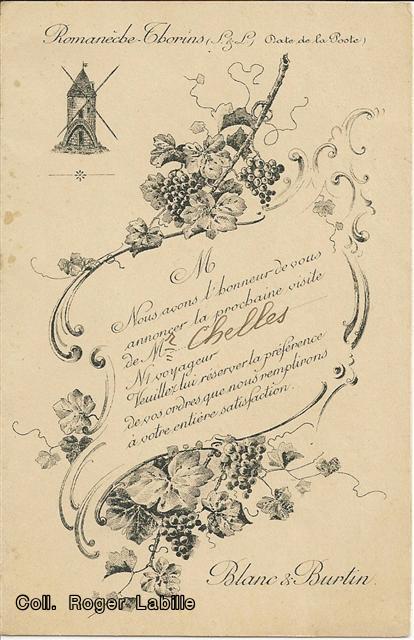 Romanèche-Thorins (S.&L.) (Date de la Poste)
M
Nous avons l'honneur de vous
annoncer la prochaine visite
de Mr Chelles
N/ voyageur
Veuillez lui réserver la préférence
de vos ordres que nous remplirons
à votre entière satisfaction.
Blanc & Burtin.
Coll. Roger Labille